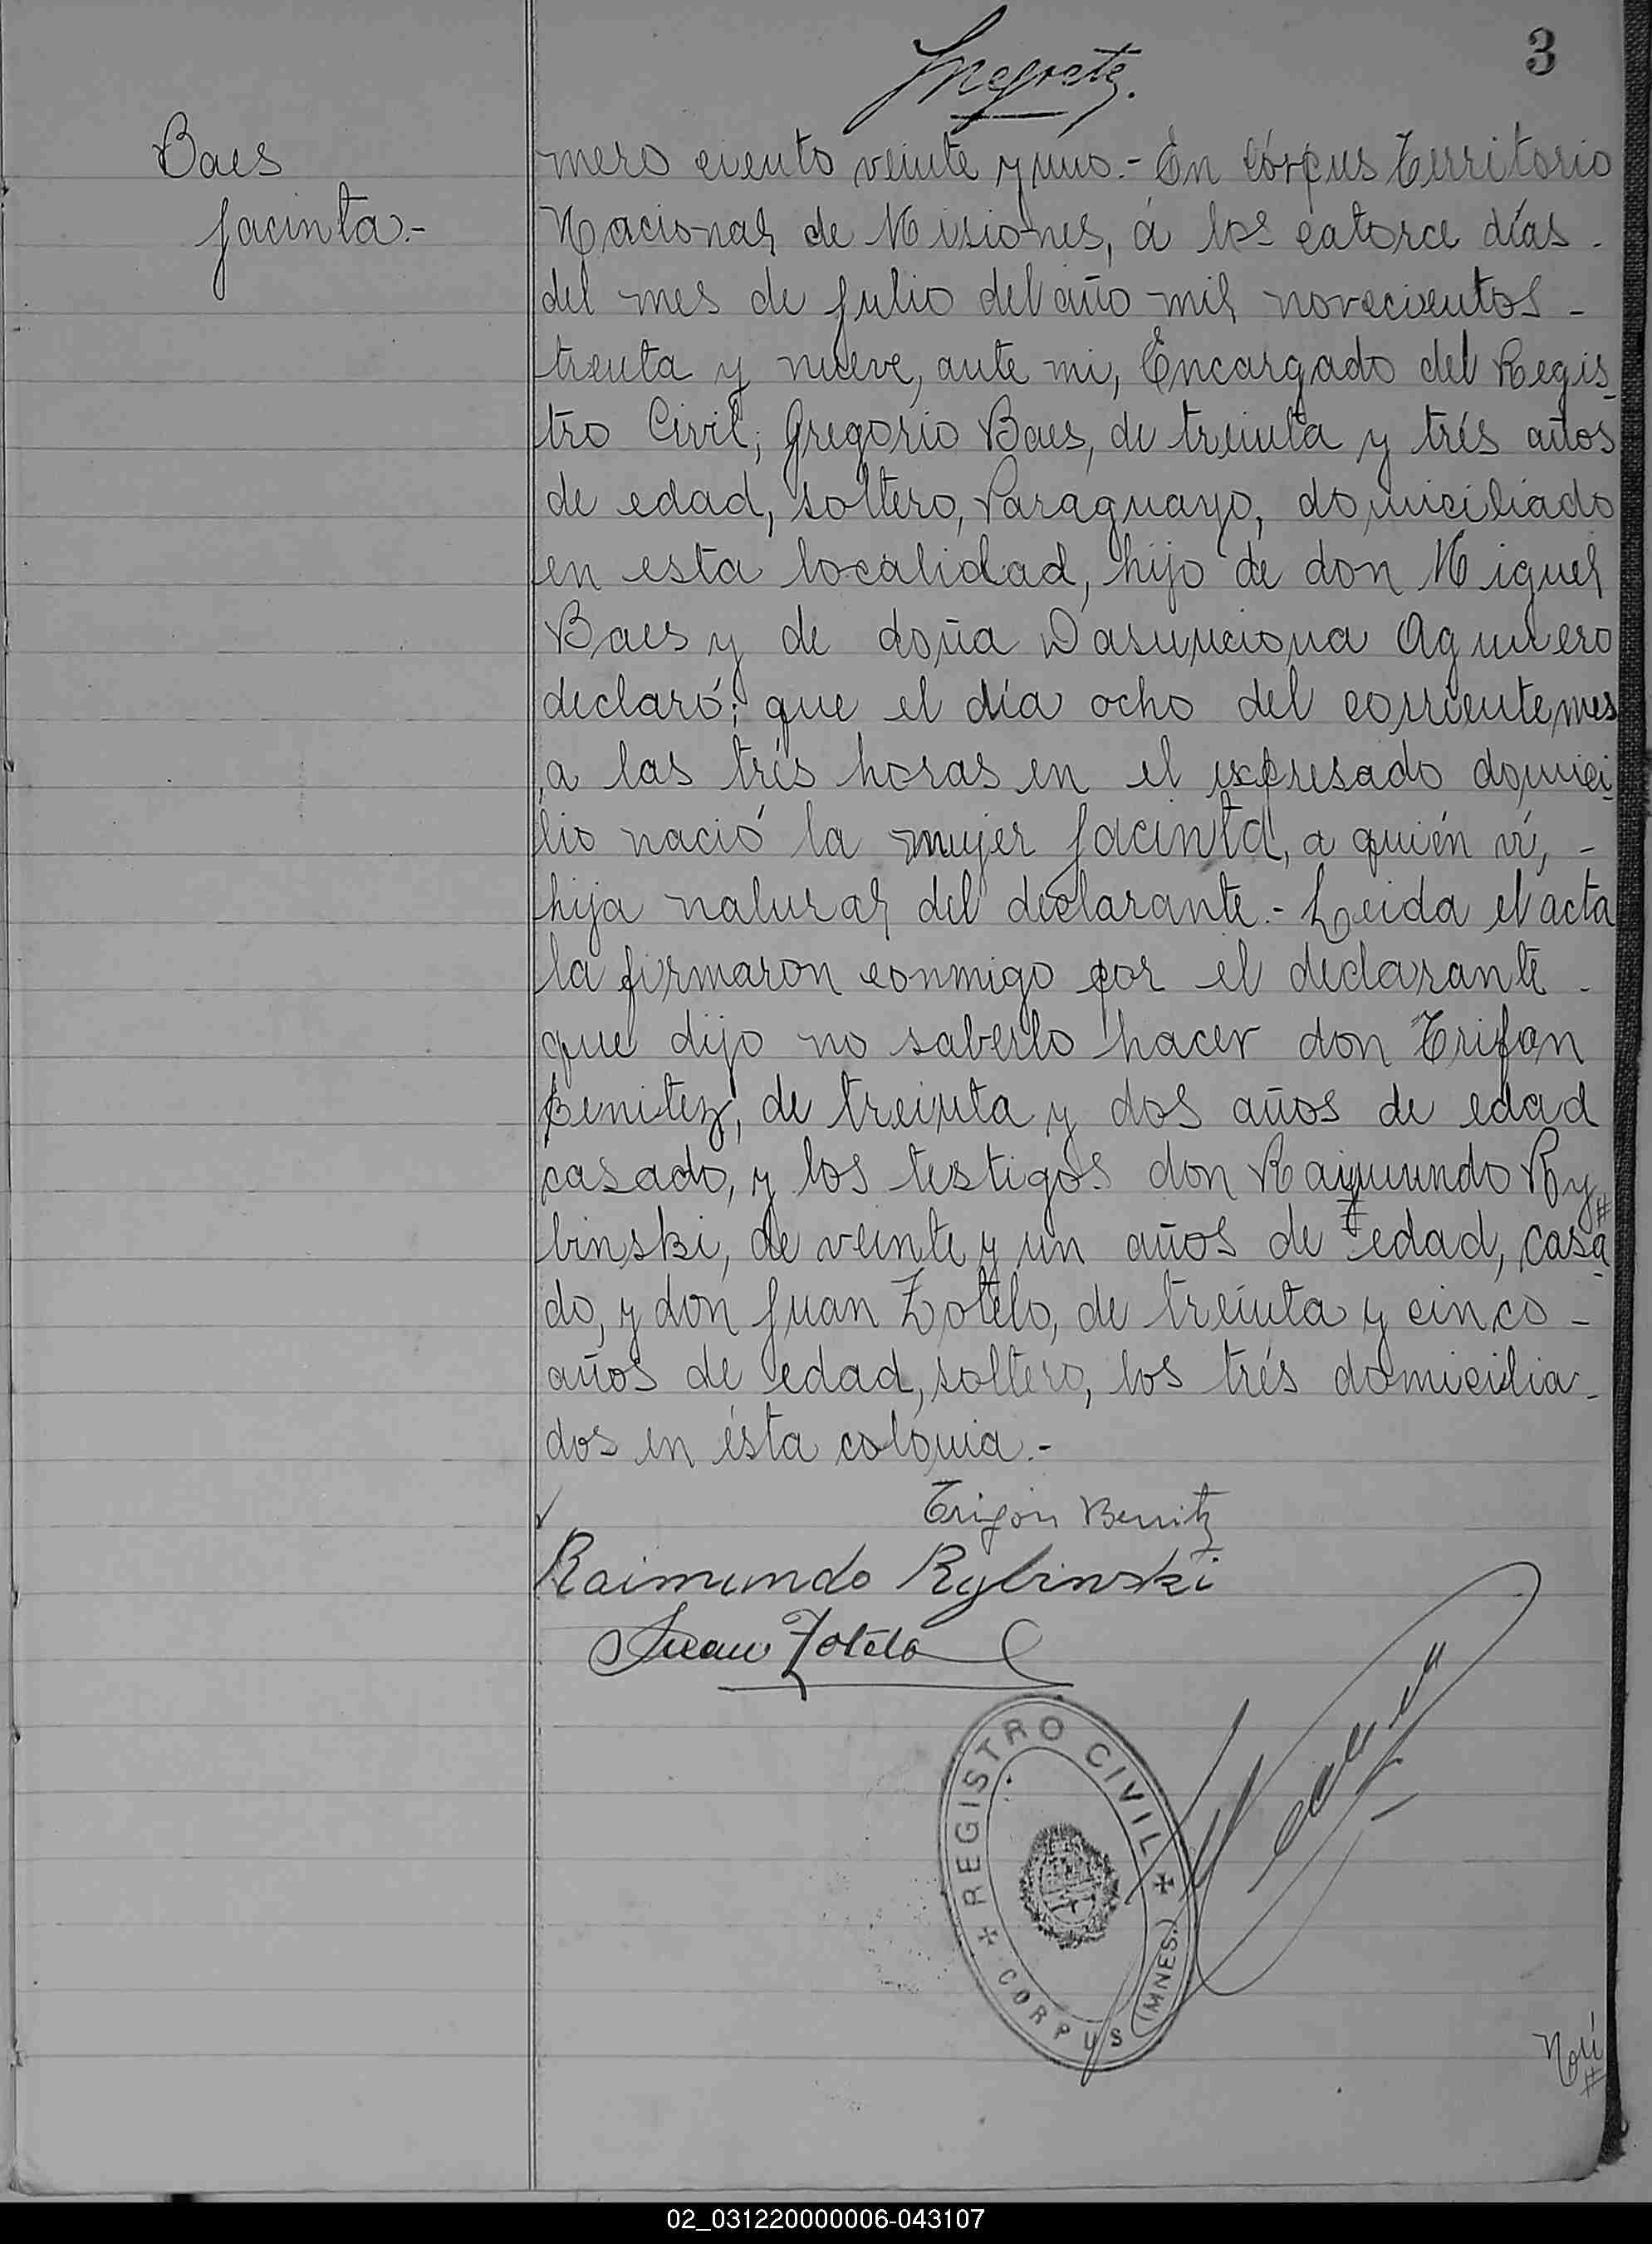 3
Baes
Jacinta.-
mero ciento veinte y uno.- En Córpus Territorio
Nacional de Misiones, á los catorce días -
del mes de Julio del año mil novecientos -
treuta y nueve, ante mi, Encargado del Regis-
tro Civil; Gregorio Baes, de treiuta y trés años
de edad, soltero, Paraguayo, domiciliado
en esta localidad, hijo de don Miguel
Baes y de doña Dasunciona Aguiero
declaró; que el día ocho del corriente mes
a las trés horas en el expresado domici-
lio nació la mujer Jacinta, a quién ví, -
hija natural del declarante.- Leida el acta
la firmaron conmigo por el declarante -
que dijo no saberlo hacer don Trifon
Benitez, de treinta y dos años de edad
casado, y los testigos don Raymundo Ry
binski, de veinte y un años de edad, casa-
do, y don Juan Zotelo, de treinta y cinco -
años de edad, soltero, los trés domicilia-
dos en ésta colonia.-
Trifon Benitz
Raimundo Rybinski
Juan Zotelo
REGISTRO CIVIL
CORPUS (MNES.)
02_031220000006-043107